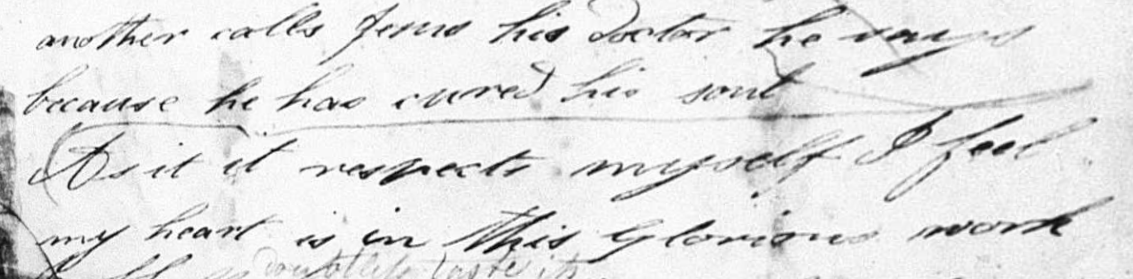 another calls Jesus his doctor he says
because he has cured his soul
As it it respects myself I feel
my heart is in this glorious work